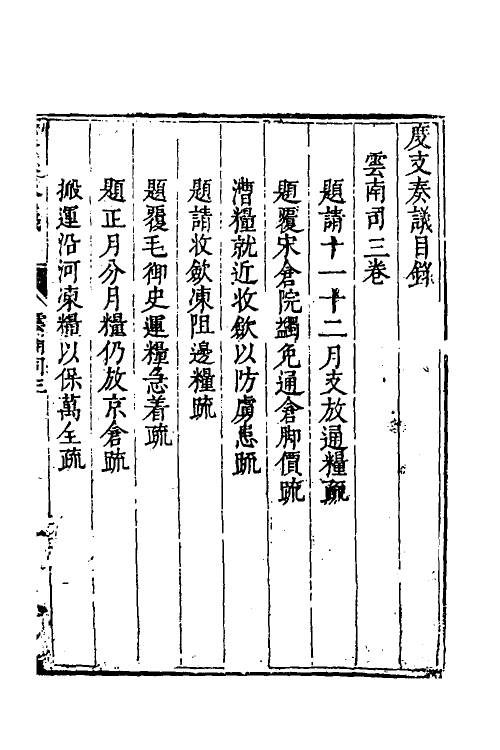 度支奏議目錄
雲南司三卷
題請十一十二月支放通糧疏
題覆宋倉院蠲免通倉脚價疏
漕糧就近收歛以防虜患疏
題請收歛凍阻邊糧疏
題覆毛御史運糧急着疏
題正月分月糧仍放京倉疏
搬運沿河凍糧以保萬全疏
雲南司三